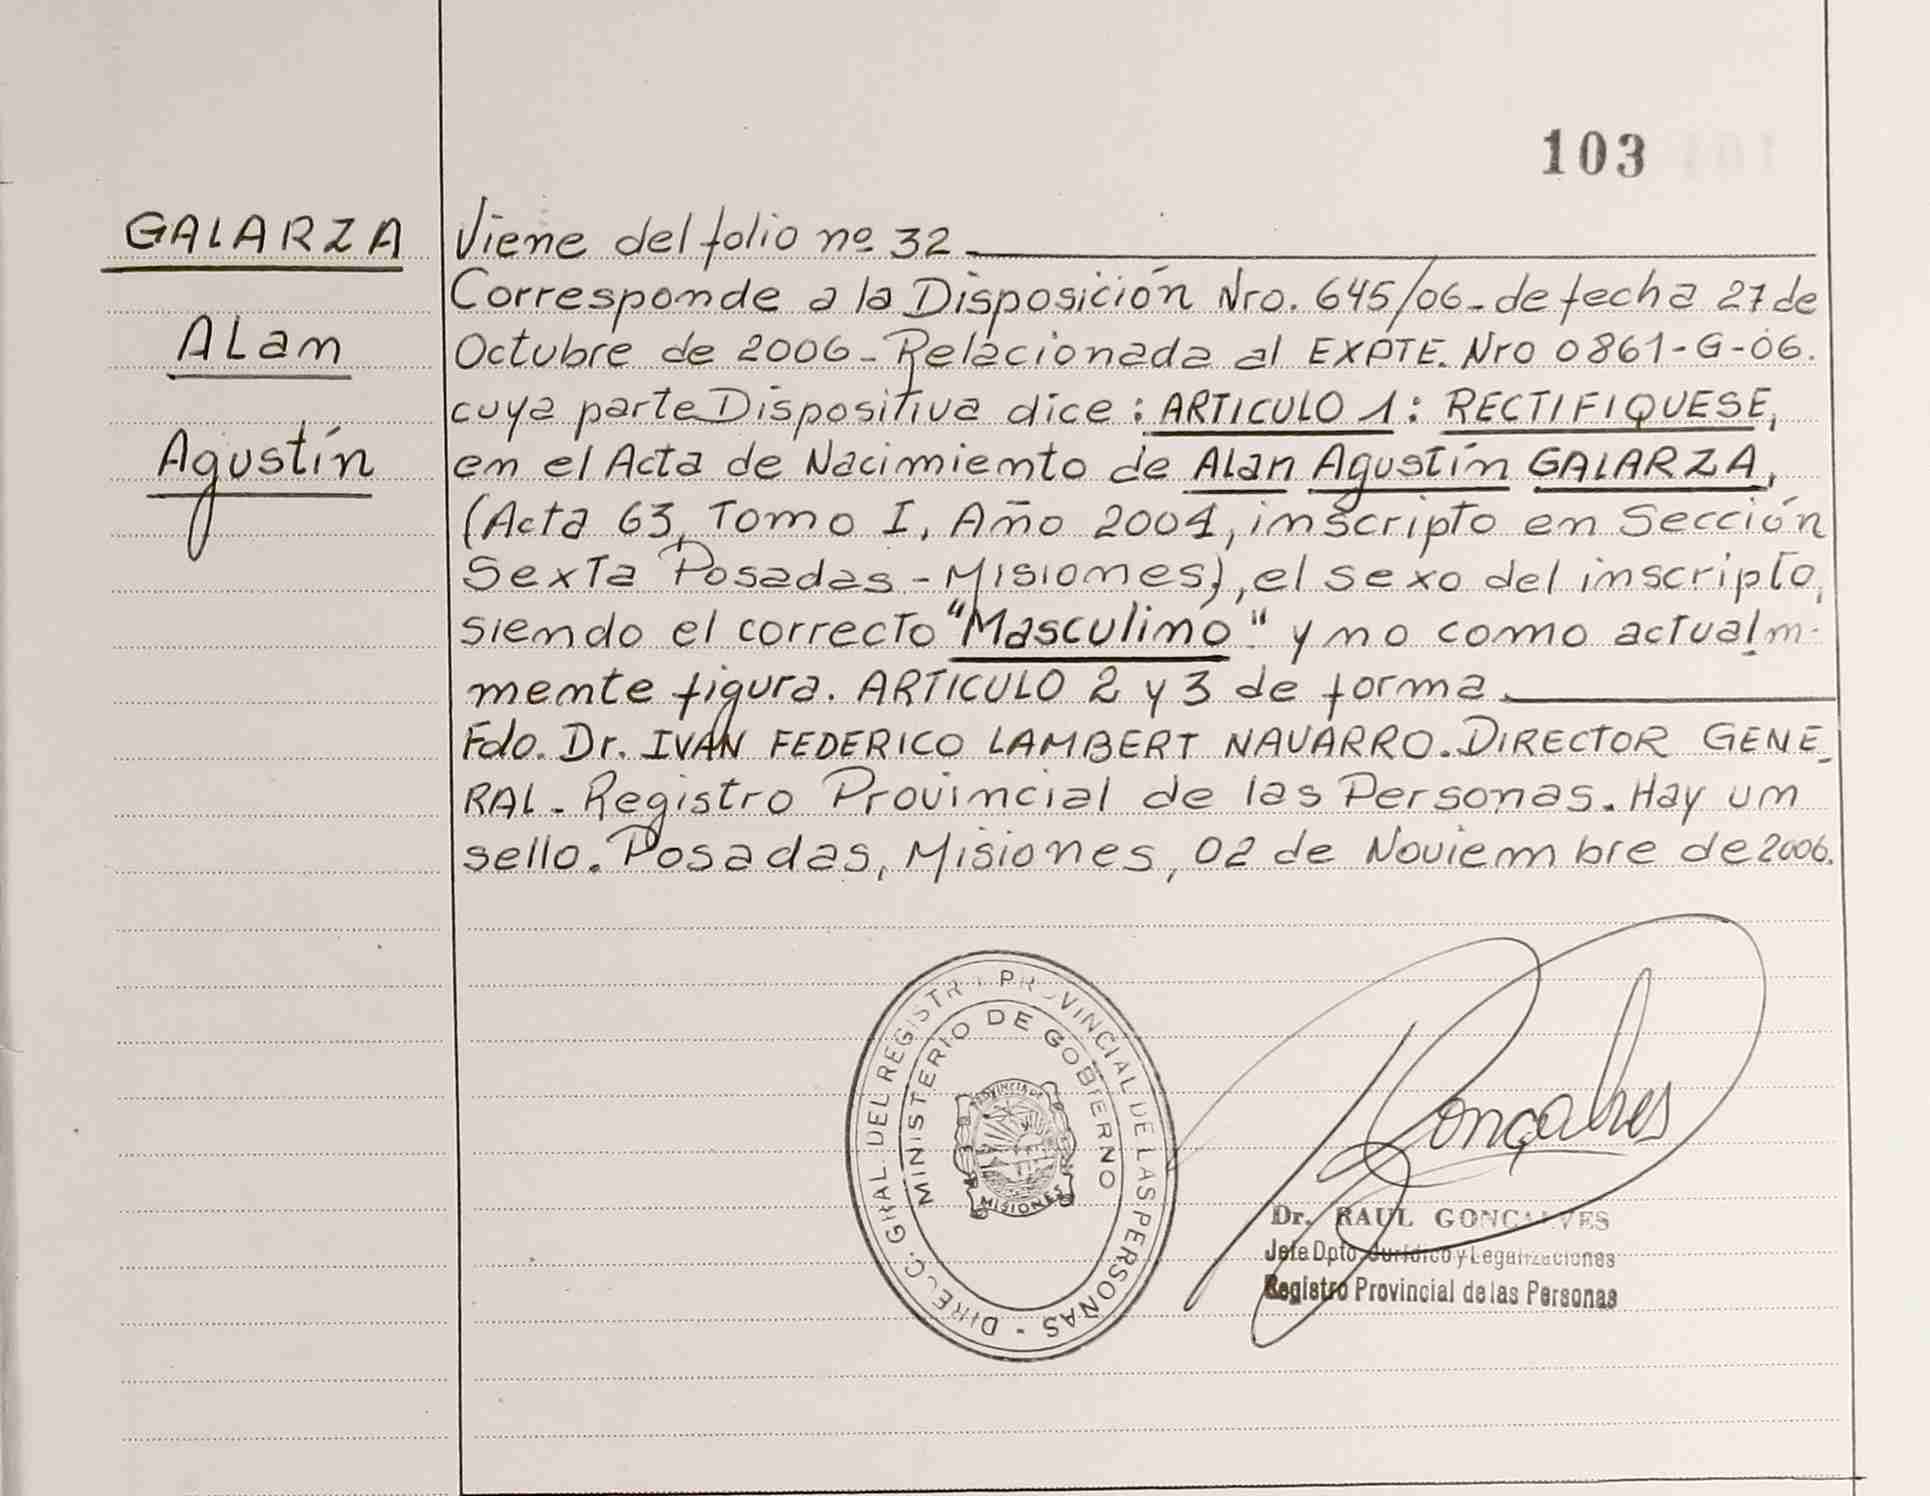 103
GALARZA
Alan
Agustín
Viene del folio nº 32
Corresponde a la Disposición Nro. 645/06- de fecha 27 de
Octubre de 2006- Relacionada al EXPTE. Nro 0861-G-06.
cuya parte Dispositiva dice: ARTICULO 1: RECTIFIQUESE,
en el Acta de Nacimiento de Alan Agustín GALARZA,
(Acta 63, Tomo I, Año 2004, inscripto en Sección
Sexta Posadas - Misiones), el sexo del inscripto,
siendo el correcto "Masculino" y no como actualm-
mente figura. ARTICULO 2 y 3 de forma.
Fdo. Dr. IVÁN FEDERICO LAMBERT NAVARRO. DIRECTOR GENE-
RAL- Registro Provincial de las Personas. Hay un
sello. Posadas, Misiones, 02 de Noviembre de 2006.
DIRECC. GRAL. DEL REGISTRO PROVINCIAL DE LAS PERSONAS -
MINISTERIO DE GOBIERNO
PROVINCIA DE
MISIONES
Gonçalves
Dr. RAUL GONCALVES
Jefe Dpto. Jurídico y Legalizaciones
Registro Provincial de las Personas